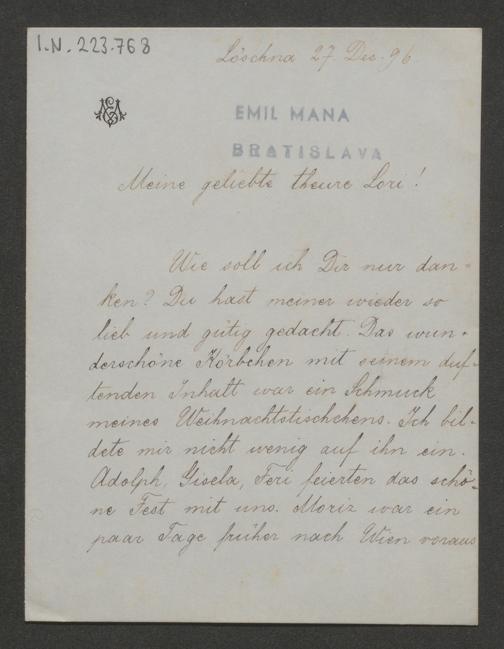 I.N. 223.768
Löschna 27. Dec. 96.
EMIL MANA
BRATISLAVA
Meine geliebte theure Lori!
Wie soll ich Dir nur dan-
ken? Du hast meiner wieder so
lieb und gütig gedacht. Das wun-
derschöne Körbchen mit seinem duf-
tenden Inhalt war ein Schmuck
meines Weihnachtstischchens. Ich bil-
dete mir nicht wenig auf ihn ein.
Adolph, Gisela, Feri feierten das schö-
ne Fest mit uns. Moriz war ein
paar Tage früher nach Wien voraus